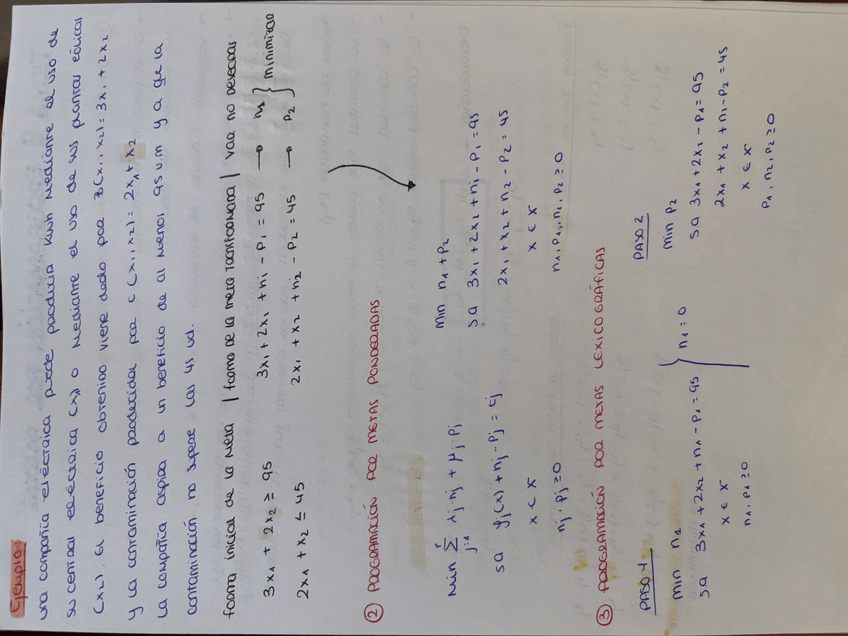 Ejemplo:
una compañia eléctrica puede producir kwh mediante el uso de
su central eléctrica (x1) o mediante el uso de sus plantas eólicas
(x2). El beneficio obtenido viene dado por B(x1,x2)=3x1+2x2
y la contaminación producida por c(x1,x2)=2x1+x2
La compañia aspira a un beneficio de al menos 95 u.m y a que la
contaminación no supere las 45 ud.
forma inicial de la meta | forma de la meta transformada | var no deseadas
3x1 + 2x2 ≥ 95 3x1 + 2x2 + n1 - p1 = 95 → n1 } minimizar
2x1 + x2 ≤ 45 2x1 + x2 + n2 - p2 = 45 → p2
② PROGRAMACIÓN POR METAS PONDERADAS
min Σ λj·nj + μj·pj
j=1
r
sa gj(x) + nj - pj = tj
x ∈ X
nj, pj ≥ 0
min n1 + p2
sa 3x1 + 2x2 + n1 - p1 = 95
2x1 + x2 + n2 - p2 = 45
x ∈ X
n1, p1, n2, p2 ≥ 0
③ PROGRAMACIÓN POR METAS LEXICOGRÁFICAS
PASO 1
min n1
sa 3x1 + 2x2 + n1 - p1 = 95 } n1 = 0
x ∈ X
n1, p1 ≥ 0
PASO 2
min p2
sa 3x1 + 2x2 - p1 = 95
2x1 + x2 + n2 - p2 = 45
x ∈ X
p1, n2, p2 ≥ 0